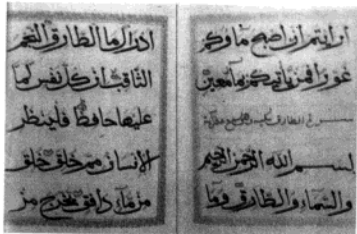 ارايتم ان اصبح ماؤكم
غورا فمن ياتيكم بما معين
سورة الطارق
بسم الله الرحمن الرحيم
والسماء والطارق وما
ادراك ما الطارق النجم
الثاقب ان كل نفس لما
عليها حافظ فلينظر
الانسان مم خلق خلق
من ماء دافق يخرج من